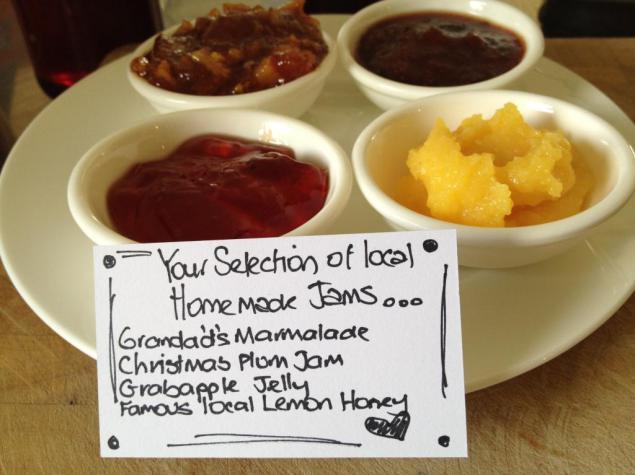 Your Selection of local
Homemade Jams...
Grandad's Marmalade
Christmas Plum Jam
Grabapple Jelly
Famous local Lemon Honey